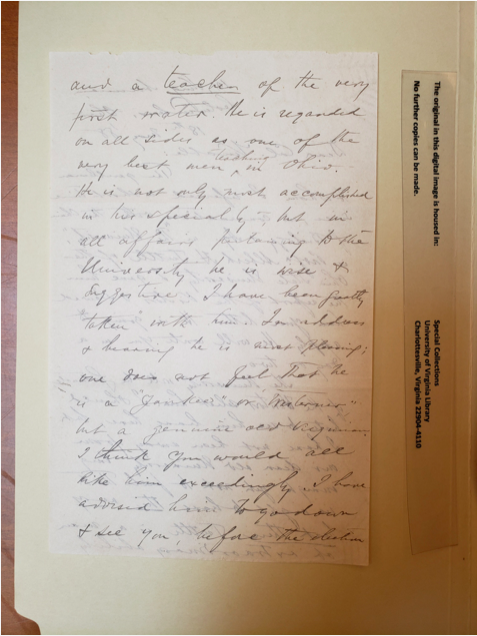 and a teacher of the very
first water. He is regarded
on all sides as one of the
very best men teaching in Ohio.
He is not only most accomplished
in his specialty, but in
all affairs pertaining to the
University he is wise &
suggestive. I have been greatly
taken with him. In address
& bearing he is most pleasing;
one does not feel that he
is a Yankee or "Westerner"
but a genuine old Virginian
I think you would all
like him exceedingly. I have
advised him to go down
& see you, before the election
The original in this digital image is housed in:
No further copies can be made.
Special Collections
University of Virginia Library
Charlottesville, Virginia 22904-4110